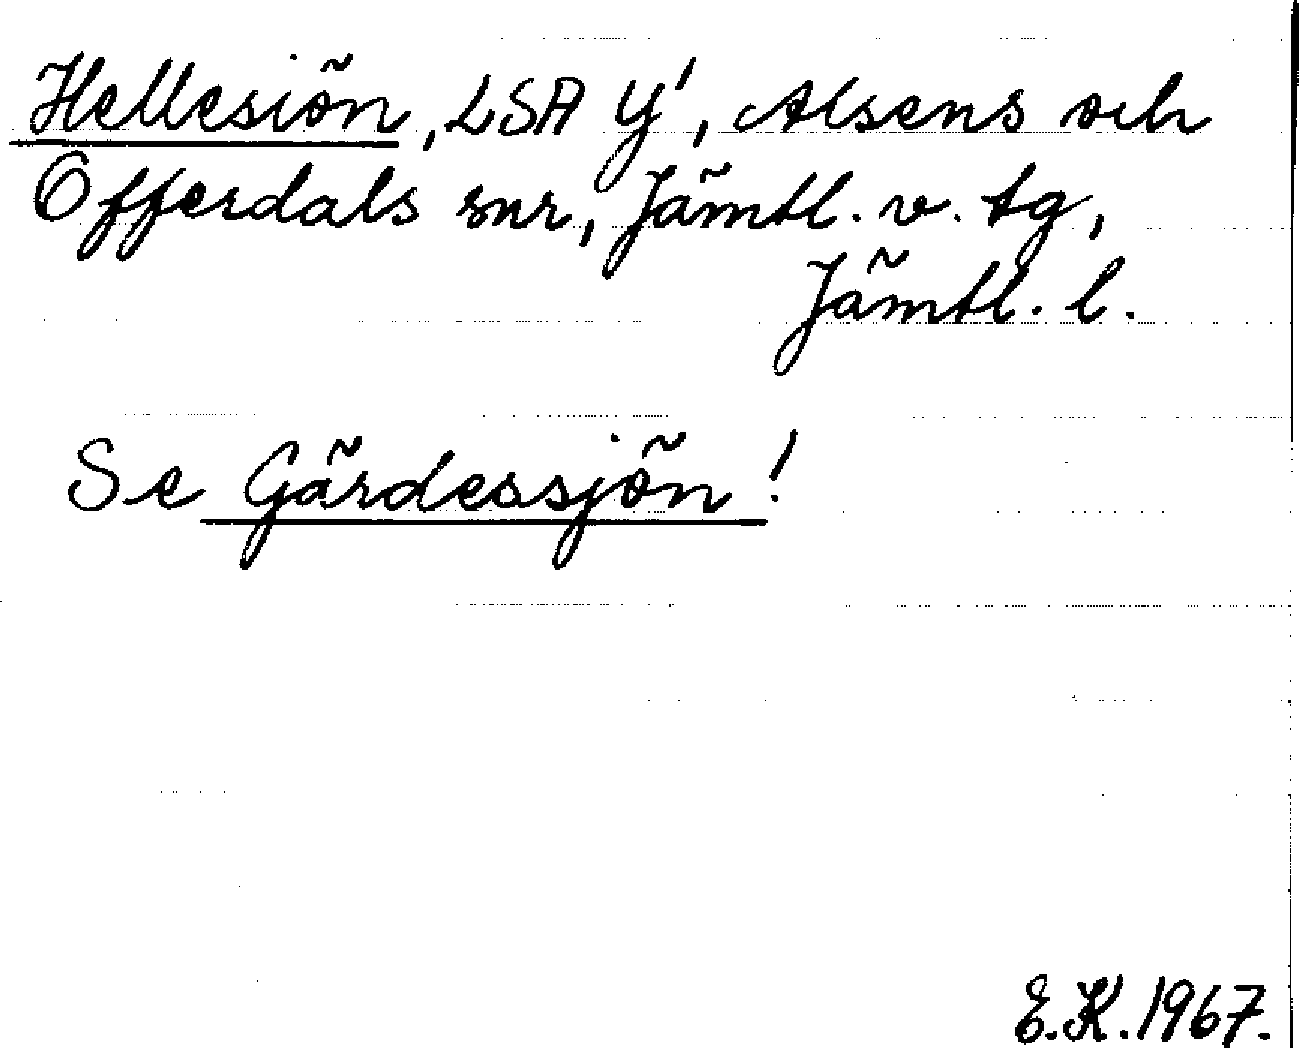 Hellesiön, LSA Y', Alsens och
Offerdals snr, Jämtl. v. tg,
Jämtl. l.
Se Gärdessjön!
E.K. 1967.